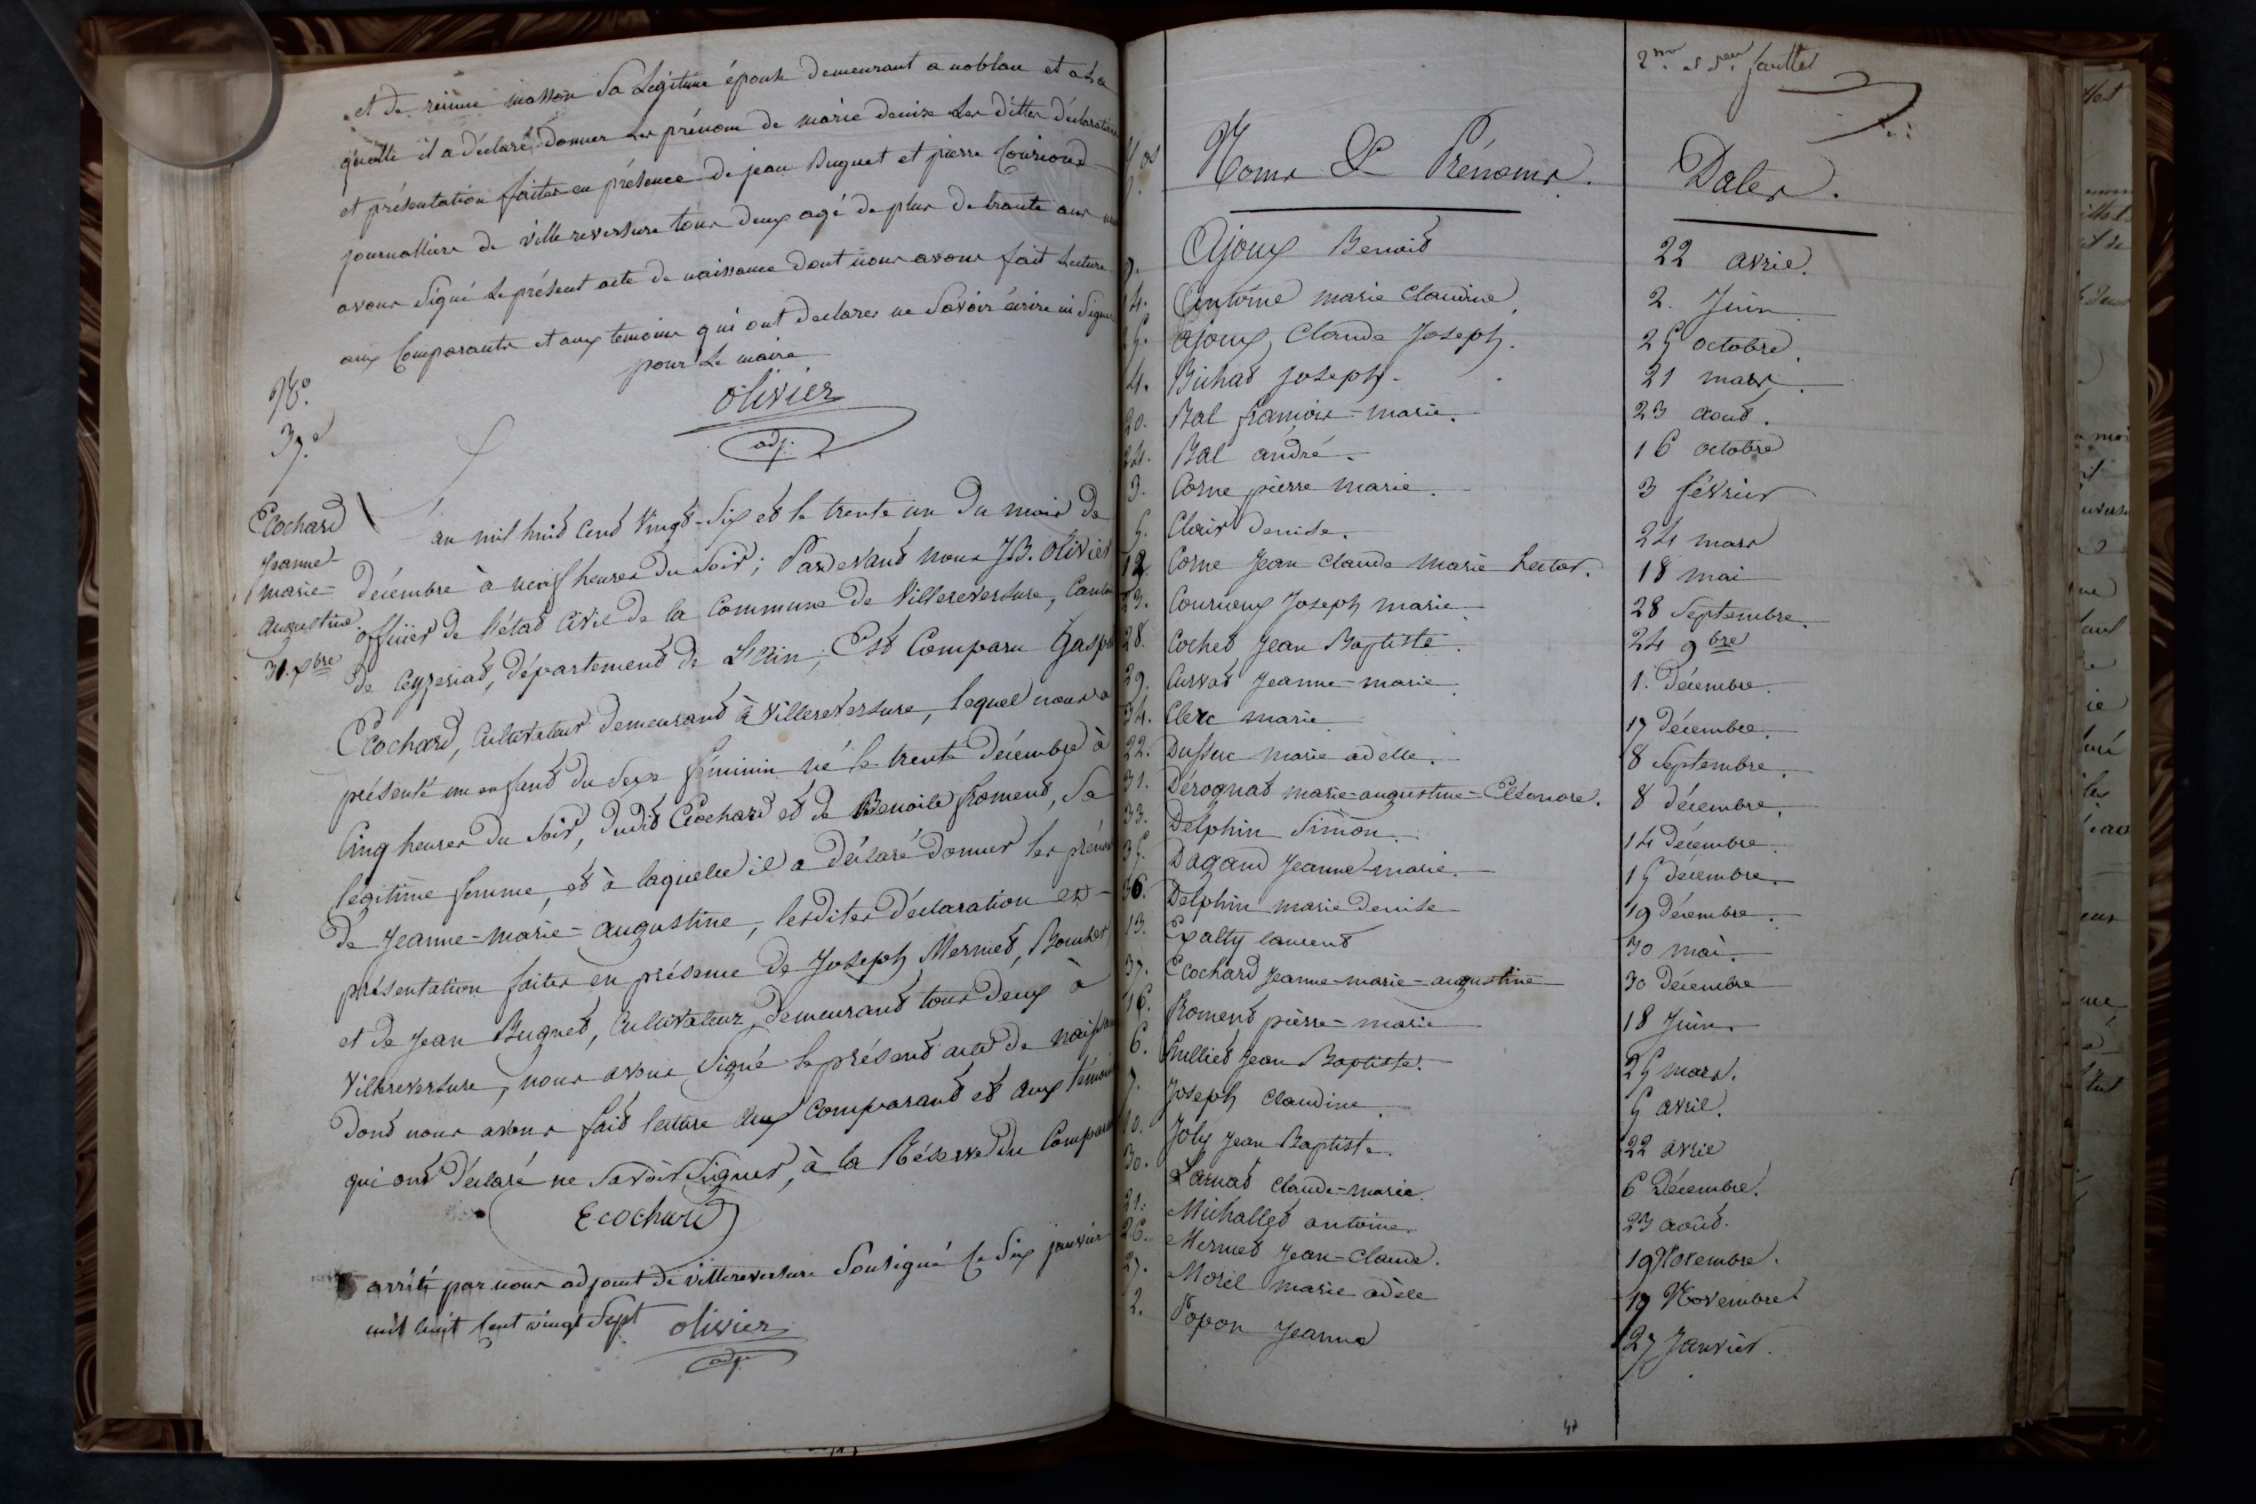 et de reinne masson sa Legitime épouse demeurant a noblan et a La
quelle il a déclaré donner Les prénom de marie denise Les dittes déclaration
et présentation faites en présence de jean Buguet et pierre Couriond
journalliers de villereversure tous deux agé de plus de trante ans nous
avons signé Le présent acte de naissance dont nous avons fait Lecture
aux Comparants et aux temoins qui ont declarer ne savoir écrire ni signer
pour Le maire
olivier
adj.
No.
37.
Ecochard
Jeanne
marie-
augustine.
31. xbre
L'an mil huit cent vingt-six et le trente un du mois de
décembre à neuf heures du soir; Pardevant nous J.B. olivier
officier de l'état civil de la commune de Villereversure, Canton
de Ceyzeriat, département de L'Ain, Est Comparu Gaspar
Ecochard, cultivateur demeurant à Villereversure, lequel nous a
présenté un enfant du sexe féminin né le trente décembre à
cinq heures du soir, dudit Ecochard et de Benoite froment, Sa
légitime femme, et à laquelle il a déclaré donner les prénoms
de Jeanne-marie-augustine, lesdites déclaration et
présentation faites en présence de Joseph Mermet,
et de Jean Buguet, cultivateur, demeurant tous deux à
Villereversure, nous avons signé le présent acte de naissance
dont nous avons fait lecture aux comparant et aux témoins
qui ont déclaré ne savoir signer, à la Réserve du Comparant
Ecochard
arrêté par nous adjoint de villereversure sousigné le six janvier
mil huit cent vingt sept olivier
adj.
2me et dier. feuillet
Nos Noms & Prénoms. Dates.
9. Ajoux Benoit 22 avril.
14. Antoine marie claudine 2. Juin
25. ajoux, Claude Joseph. 25 octobre.
4. Bichat joseph. 21 mars.
20. Bal françois-marie. 23 août.
24. Bal andré. 16 octobre
3. Corne pierre marie. 3 février
5. Clair denise. 24 mars
12. Corne Jean claude marie hector. 18 mai
23. Courvoux Joseph marie 28 Septembre.
28. Cochet Jean Baptiste. 24 9bre
29. Curvat Jeanne-marie 1. Décembre.
34. Clerc marie 17 décembre.
22. Dufour marie adelle. 8 septembre.
31. Dérognat marie-augustine-Eléonore. 8 décembre.
33. Delphin Simon. 14 décembre.
35. Dagand Jeanne-marie. 15 décembre.
36. Delphin marie Denise 19 décembre.
13. Expalty laurent 30 mai.
37. Ecochard Jeanne-marie-augustine 30 décembre
16. froment pierre-marie 18 Juin.
6. Jean Baptiste. 25 mars.
7. Joseph Claudine. 5 avril.
10. Joly Jean Baptiste. 22 avril
30. Larnat claude-marie. 6 Décembre.
21. Michallet antoine. 23 août.
26. Mermet Jean-claude. 19 Novembre.
27. Morel marie adèle 19 Novembre
2. Popon Jeanne 27 Janvier.